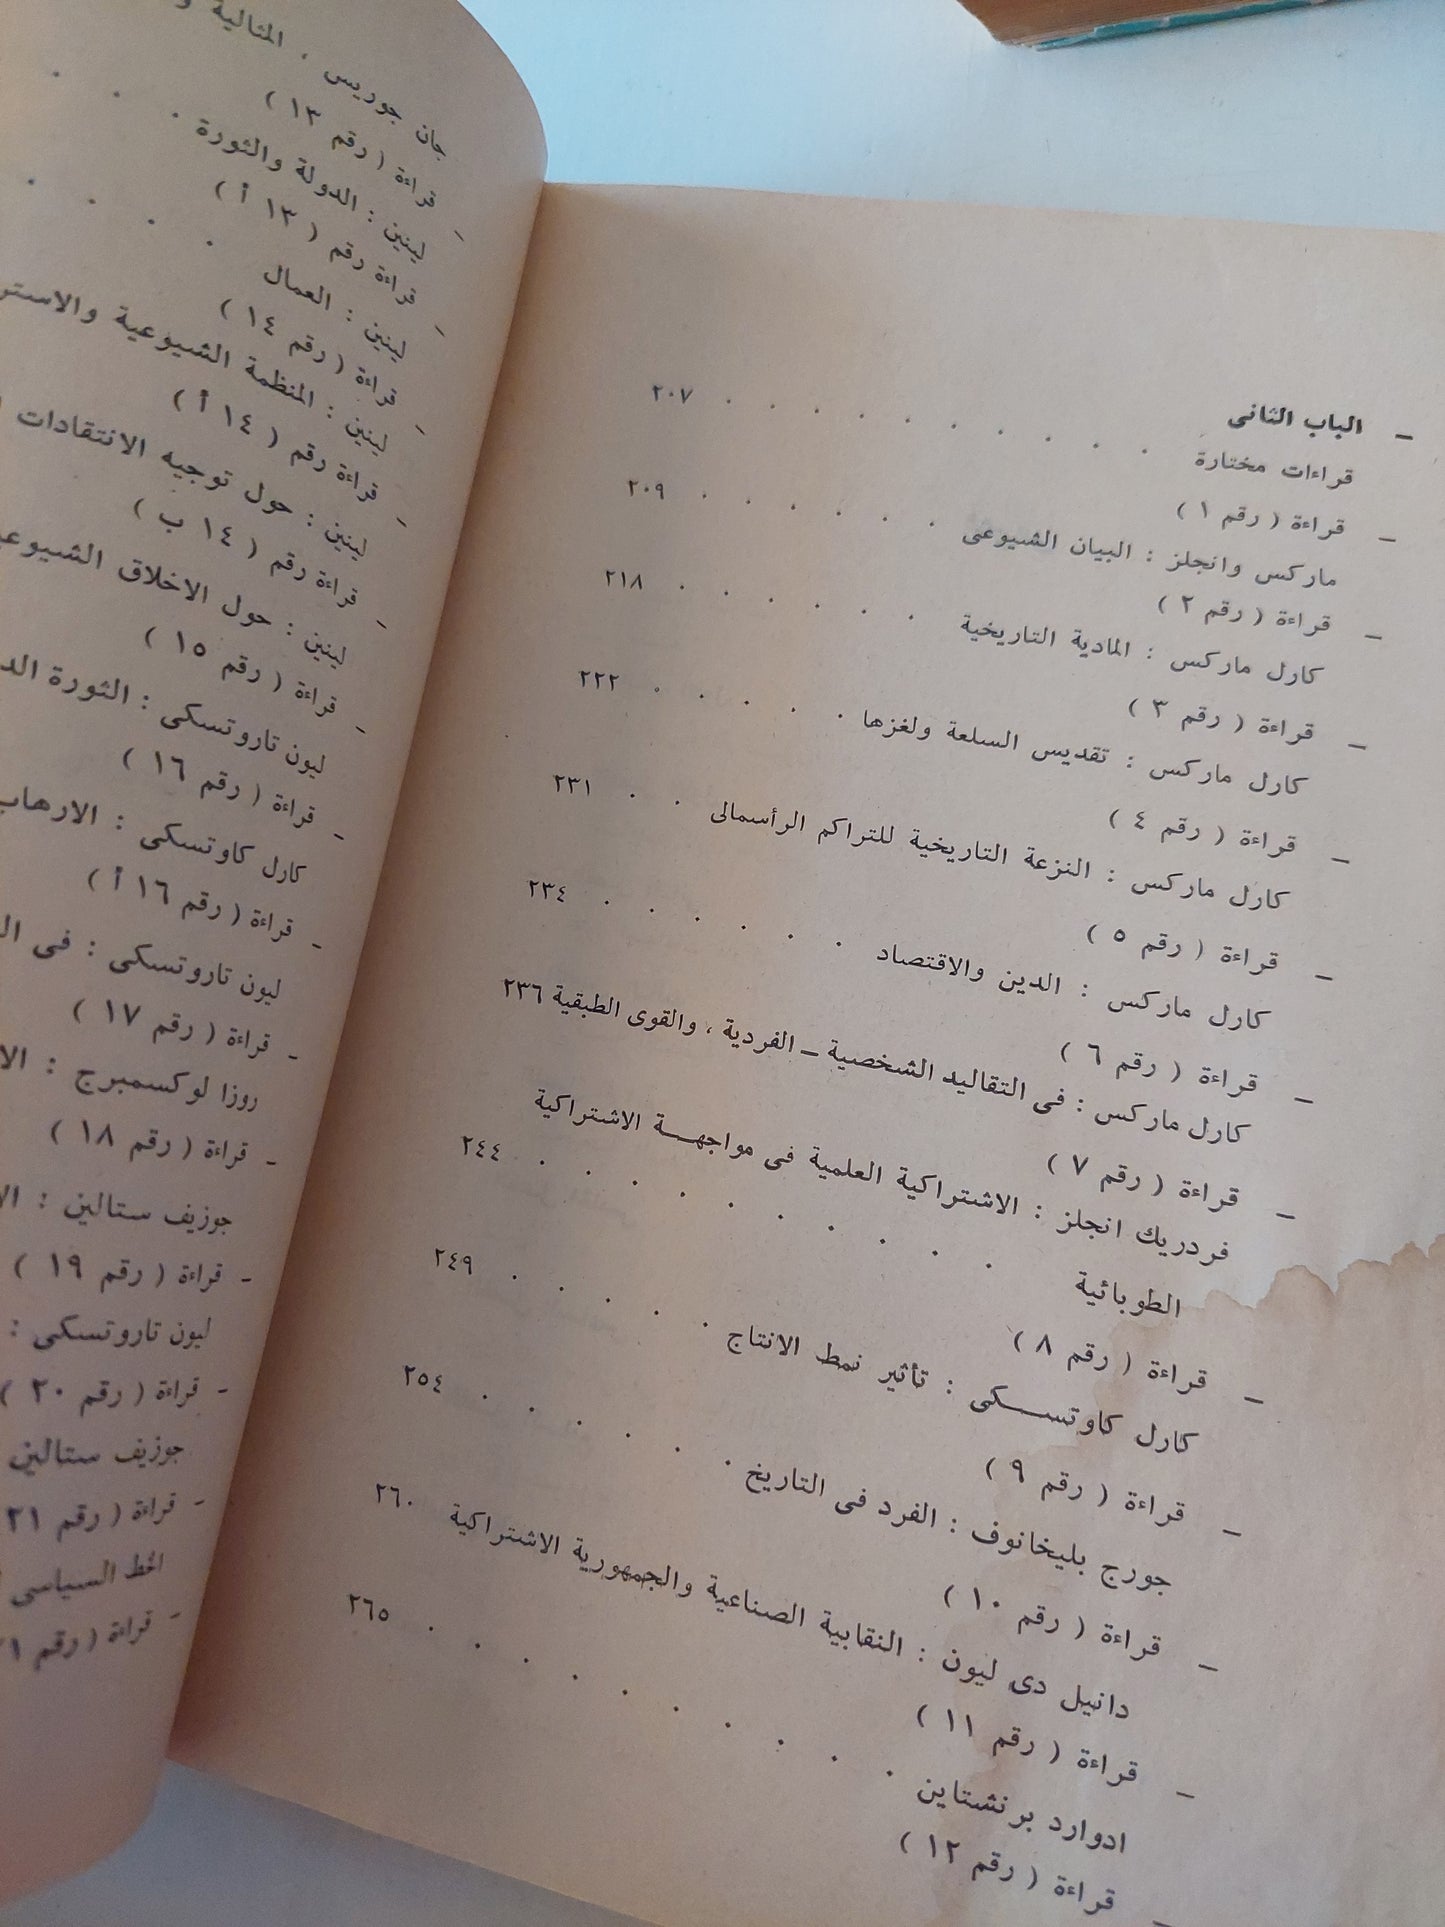 – الباب الثانى
قراءات مختارة . . . . . . . . . . ٢٠٧
– قراءة ( رقم ١ )
ماركس وانجلز : البيان الشيوعى . . . . . . ٢٠٩
– قراءة ( رقم ٢ )
كارل ماركس : المادية التاريخية . . . . . . ٢١٨
– قراءة ( رقم ٣ )
كارل ماركس : تقديس السلعة ولغزها . . . . . ٢٢٢
– قراءة ( رقم ٤ )
كارل ماركس : النزعة التاريخية للتراكم الرأسمالى . . ٢٣١
– قراءة ( رقم ٥ )
كارل ماركس : الدين والاقتصاد . . . . . . ٢٣٤
– قراءة ( رقم ٦ )
كارل ماركس : فى التقاليد الشخصية – الفردية ، والقوى الطبقية ٢٣٦
– قراءة ( رقم ٧ )
فردريك انجلز : الاشتراكية العلمية فى مواجهة الاشتراكية
الطوبائية . . . . . . . . . . ٢٤٤
– قراءة ( رقم ٨ )
كارل كاوتسكى : تأثير نمط الانتاج . . . . . ٢٤٩
– قراءة ( رقم ٩ )
جورج بليخانوف : الفرد فى التاريخ . . . . . . ٢٥٤
– قراءة ( رقم ١٠ )
دانيل دى ليون : النقابية الصناعية والجمهورية الاشتراكية ٢٦٠
– قراءة ( رقم ١١ )
ادوارد برنشتاين . . . . . . . . . . . ٢٦٥
– قراءة ( رقم ١٢ )
جان جوريس ، المثالية
– قراءة ( رقم ١٣ )
لينين : الدولة والثورة . . .
– قراءة رقم ( ١٣ أ )
لينين : العمال . . . .
– قراءة ( رقم ١٤ )
لينين : المنظمة الشيوعية
– قراءة رقم ( ١٤ أ )
لينين : حول توجيه الانتقادات
– قراءة رقم ( ١٤ ب )
لينين : حول الاخلاق
– قراءة ( رقم ١٥ )
ليون تاروتسكى : الثورة
– قراءة ( رقم ١٦ )
كارل كاوتسكى : الارهاب
– قراءة ( رقم ١٦ أ )
ليون تاروتسكى : فى
– قراءة ( رقم ١٧ )
روزا لوكسمبرج :
– قراءة ( رقم ١٨ )
جوزيف ستالين :
– قراءة ( رقم ١٩ )
ليون تاروتسكى :
– قراءة ( رقم ٢٠ )
جوزيف ستالين
– قراءة ( رقم ٢١
الخط السياسى
– قراءة ( رقم